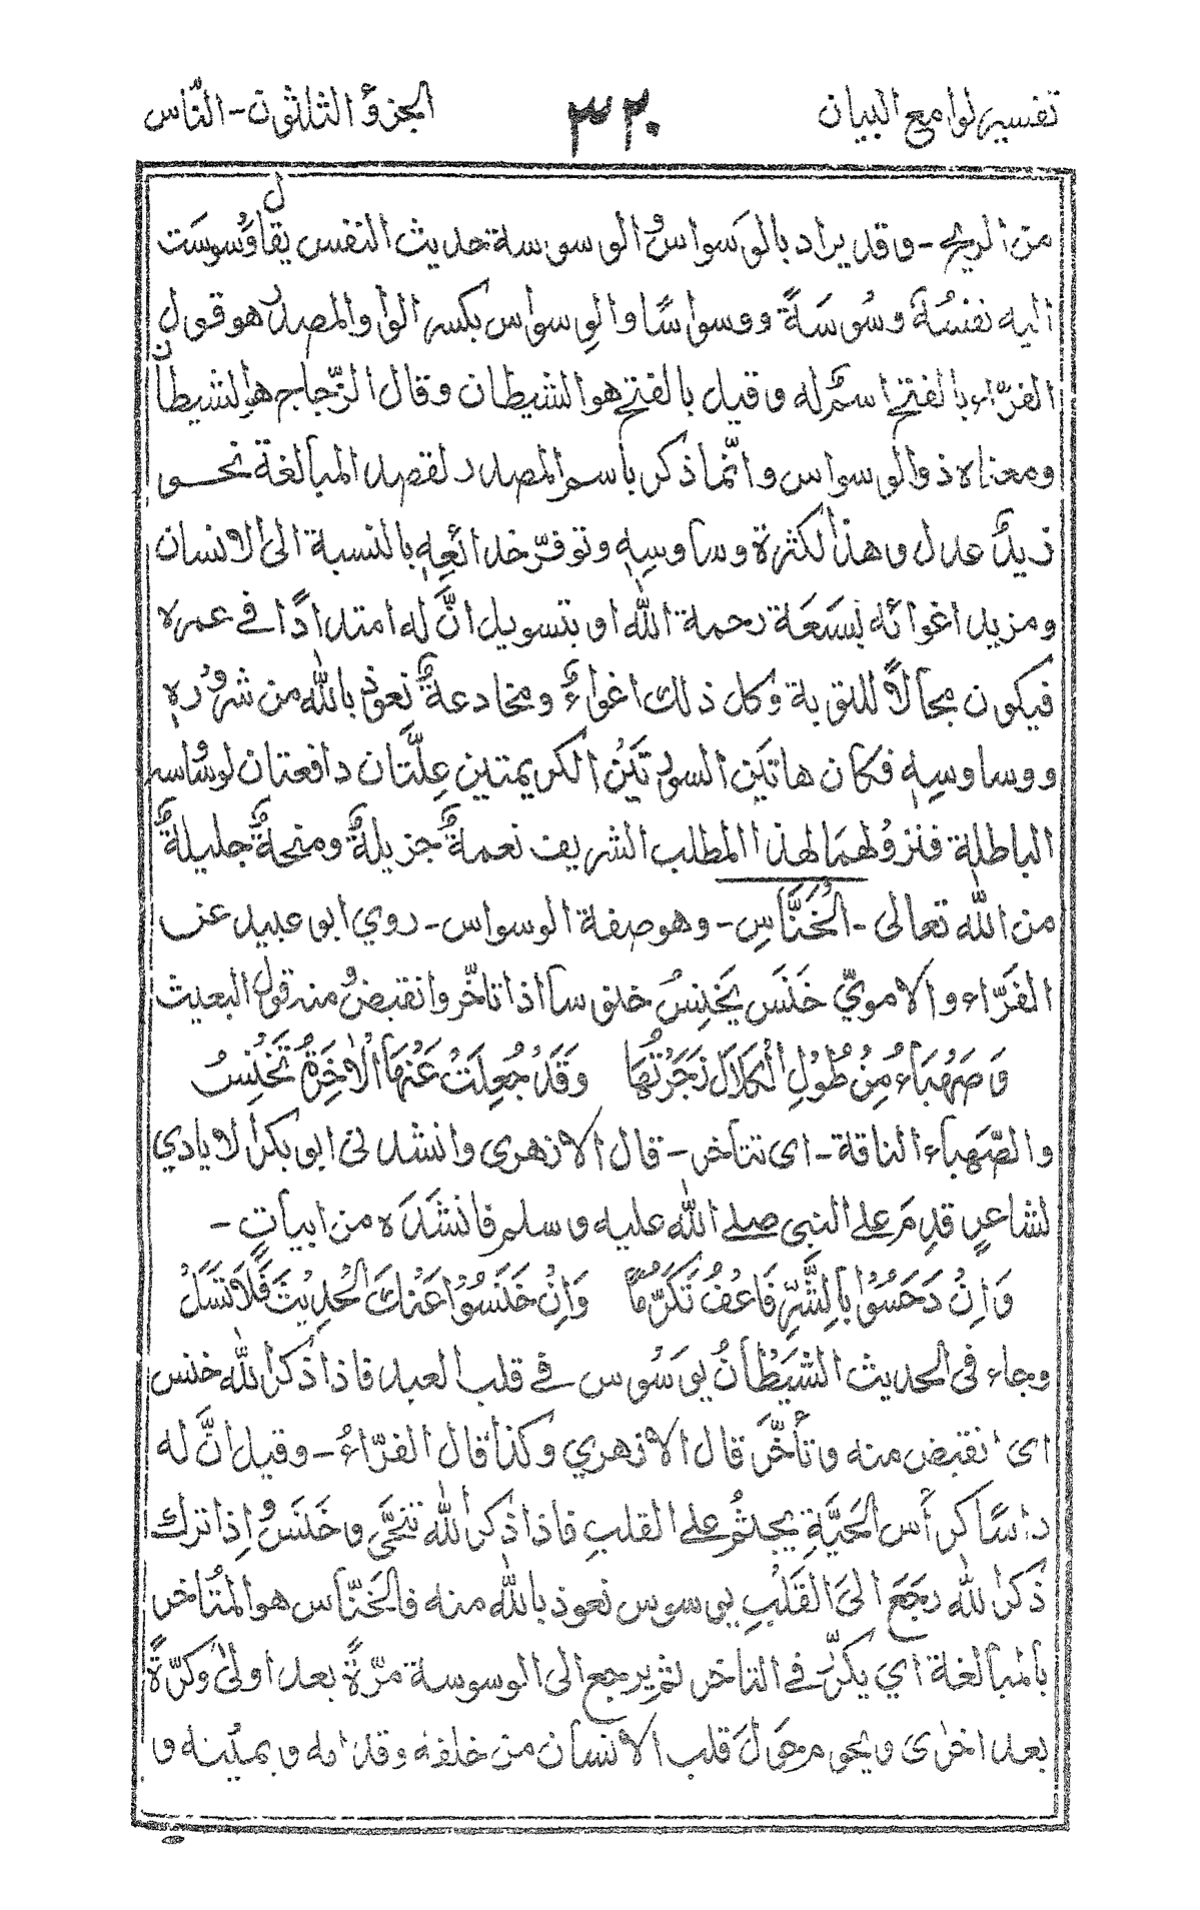 تفسير لوامع البيان ٣٢٠ الجزؤ الثلثون - النّاس
من الريح - وقد يراد بالوَسواسُ الوسوسة حديث النفس يقال وَسْوست
اليه نفسُهٗ وسْوسَةً ووسواسًا والوِسواس بكسر الواو المصدر هو قول
الفرّاء بالفتح اسمٌ له وقيل بالفتح هو الشيطان وقال الزّجاج هو الشيطان
ومعناه ذو الوسواس وانّما ذكر باسم المصدر لقصد المبالغة نحو
زيدٌ عدل وهذا لكثرة وساوسِهٖ وتوفّر خدائعِهٖ بالنسبة الى الانسان
ومزيد اغوائه بسَعَة رحمة اللّٰه او بتسويل انَّ له امتدادًا في عمره
فيكون مجالاً للتوبة وكل ذلك اغواءٌ ومخادعةٌ نعوذ باللّٰه من شروره
ووساوسِهٖ فكان هاتَين السورتَين الكريمتين عِلّتَان دافعتان لوساوسه
الباطلة فنزولهمَا لهذا المطلب الشريف نعمةٌ جزيلةٌ ومنحةٌ جليلةٌ
من اللّٰه تعالى - الْخَنَّاسِ - وهو صفة الوسواس - روي ابو عبيد عن
الفرّاء والامويّ خَنَسَ يَخنِسُ خنوسا اذا تاخّر وانقبض ومنه قول البعيث
وَصَهْبَاءُ مِنْ طُوْلِ الْكَلَالِ زَجَرْتُهَا وَقَدْ جُعِلَتْ عَنْهَا الْاٰخِرَةُ تَخْنِسُ
والصّهباء الناقة - اى تتاخر - قال الازهرى وانشد نى ابو بكر الايادي
لشاعرٍ قدِمَ على النبى صلے اللّٰه عليه وسلم فانشَدَه من ابياتٍ -
وَاِنْ دَحَسُوْا بِالشَّرِّ فَاعْفُ تَكَرُّمًا وَاِنْ خَنَسُوْا عَنْكَ الْحَدِيْثَ فَلَا تَسَلْ
وجاء فى الحديث الشيْطانُ يوَسْوس في قلب العبد فاذا ذكر اللّٰه خنس
اى انقبض منه وتأخّر قال الازهري وكذا قال الفرّاءُ - وقيل انَّ له
راسًا كرأس الحَيَّةِ يجثمُ على القلبِ فاذا ذكر اللّٰه تنحَّى وخَنَسَ واِذا ترك
ذكر اللّٰه رجَعَ الىَ القَلْبِ يوسوس نعوذ باللّٰه منه فالخَنّاس هو المتأخر
بالمبالغة اي يكرّر في التاخر ثم يرجع الى الوسوسة مرّةً بعد اولىٰ وكرّةً
بعد اخرٰى ويحوم حَولَ قلب الانسان من خلفه وقدامه ويمينه و